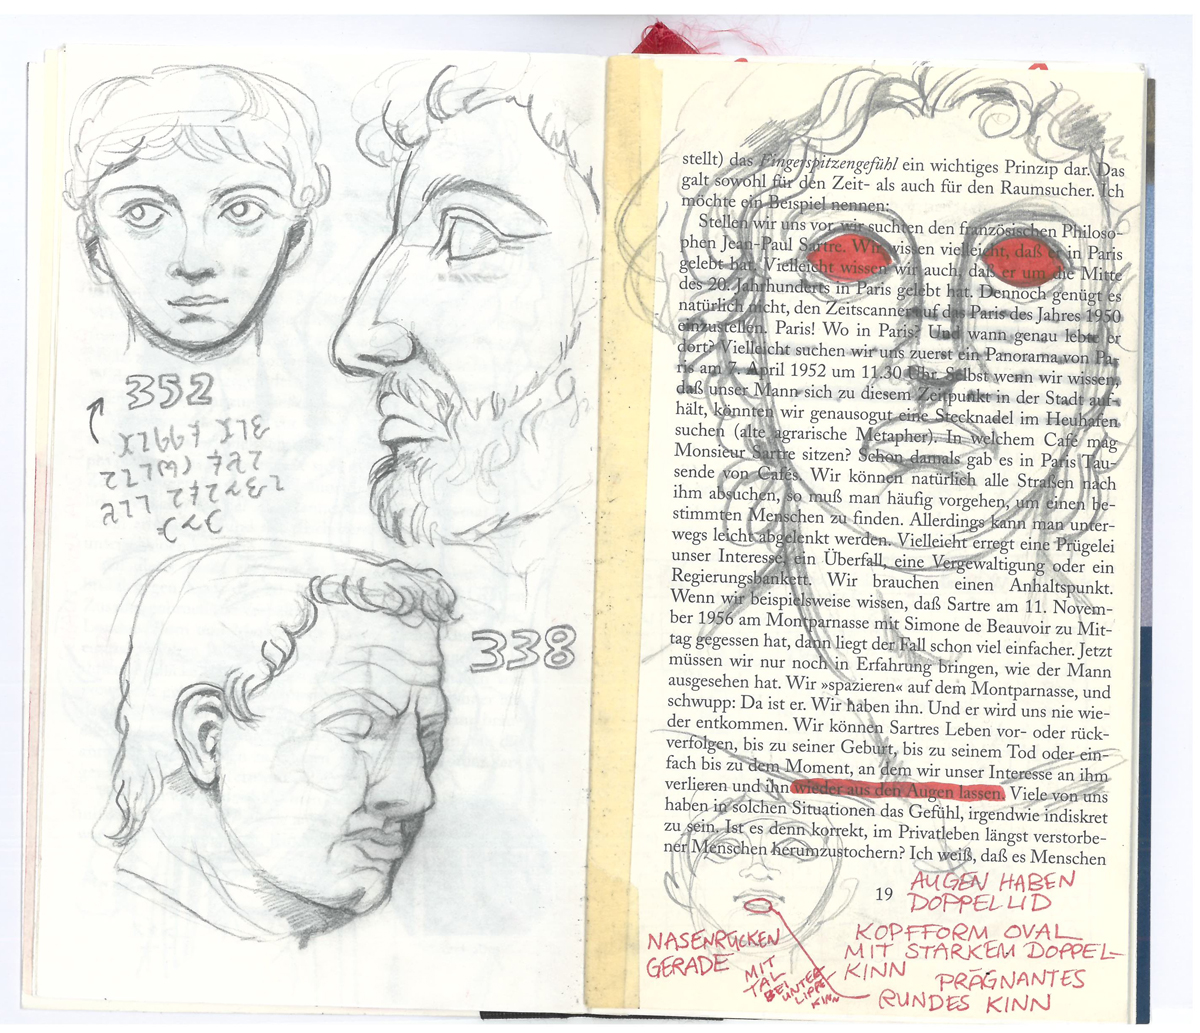 352
338
stellt) das Fingerspitzengefühl ein wichtiges Prinzip dar. Das
galt sowohl für den Zeit- als auch für den Raumsucher. Ich
möchte ein Beispiel nennen:
Stellen wir uns vor, wir suchten den französischen Philoso-
phen Jean-Paul Sartre. Wir wissen vielleicht, daß er in Paris
gelebt hat. Vielleicht wissen wir auch, daß er um die Mitte
des 20. Jahrhunderts in Paris gelebt hat. Dennoch genügt es
natürlich nicht, den Zeitscanner auf das Paris des Jahres 1950
einzustellen. Paris! Wo in Paris? Und wann genau lebte er
dort? Vielleicht suchen wir uns zuerst ein Panorama von Pa-
ris am 7. April 1952 um 11.30 Uhr. Selbst wenn wir wissen,
daß unser Mann sich zu diesem Zeitpunkt in der Stadt auf-
hält, könnten wir genausogut eine Stecknadel im Heuhafen
suchen (alte agrarische Metapher). In welchem Café mag
Monsieur Sartre sitzen? Schon damals gab es in Paris Tau-
sende von Cafés. Wir können natürlich alle Straßen nach
ihm absuchen, so muß man häufig vorgehen, um einen be-
stimmten Menschen zu finden. Allerdings kann man unter-
wegs leicht abgelenkt werden. Vielleicht erregt eine Prügelei
unser Interesse, ein Überfall, eine Vergewaltigung oder ein
Regierungsbankett. Wir brauchen einen Anhaltspunkt.
Wenn wir beispielsweise wissen, daß Sartre am 11. Novem-
ber 1956 am Montparnasse mit Simone de Beauvoir zu Mit-
tag gegessen hat, dann liegt der Fall schon viel einfacher. Jetzt
müssen wir nur noch in Erfahrung bringen, wie der Mann
ausgesehen hat. Wir »spazieren« auf dem Montparnasse, und
schwupp: Da ist er. Wir haben ihn. Und er wird uns nie wie-
der entkommen. Wir können Sartres Leben vor- oder rück-
verfolgen, bis zu seiner Geburt, bis zu seinem Tod oder ein-
fach bis zu dem Moment, an dem wir unser Interesse an ihm
verlieren und ihn wieder aus den Augen lassen. Viele von uns
haben in solchen Situationen das Gefühl, irgendwie indiskret
zu sein. Ist es denn korrekt, im Privatleben längst verstorbe-
ner Menschen herumzustochern? Ich weiß, daß es Menschen
19
AUGEN HABEN
DOPPELLID
KOPFFORM OVAL
MIT STARKEM DOPPEL-
KINN
NASENRÜCKEN
GERADE
MIT
TAL
BEI
UNTER
LIPPE
KINN
PRÄGNANTES
RUNDES KINN